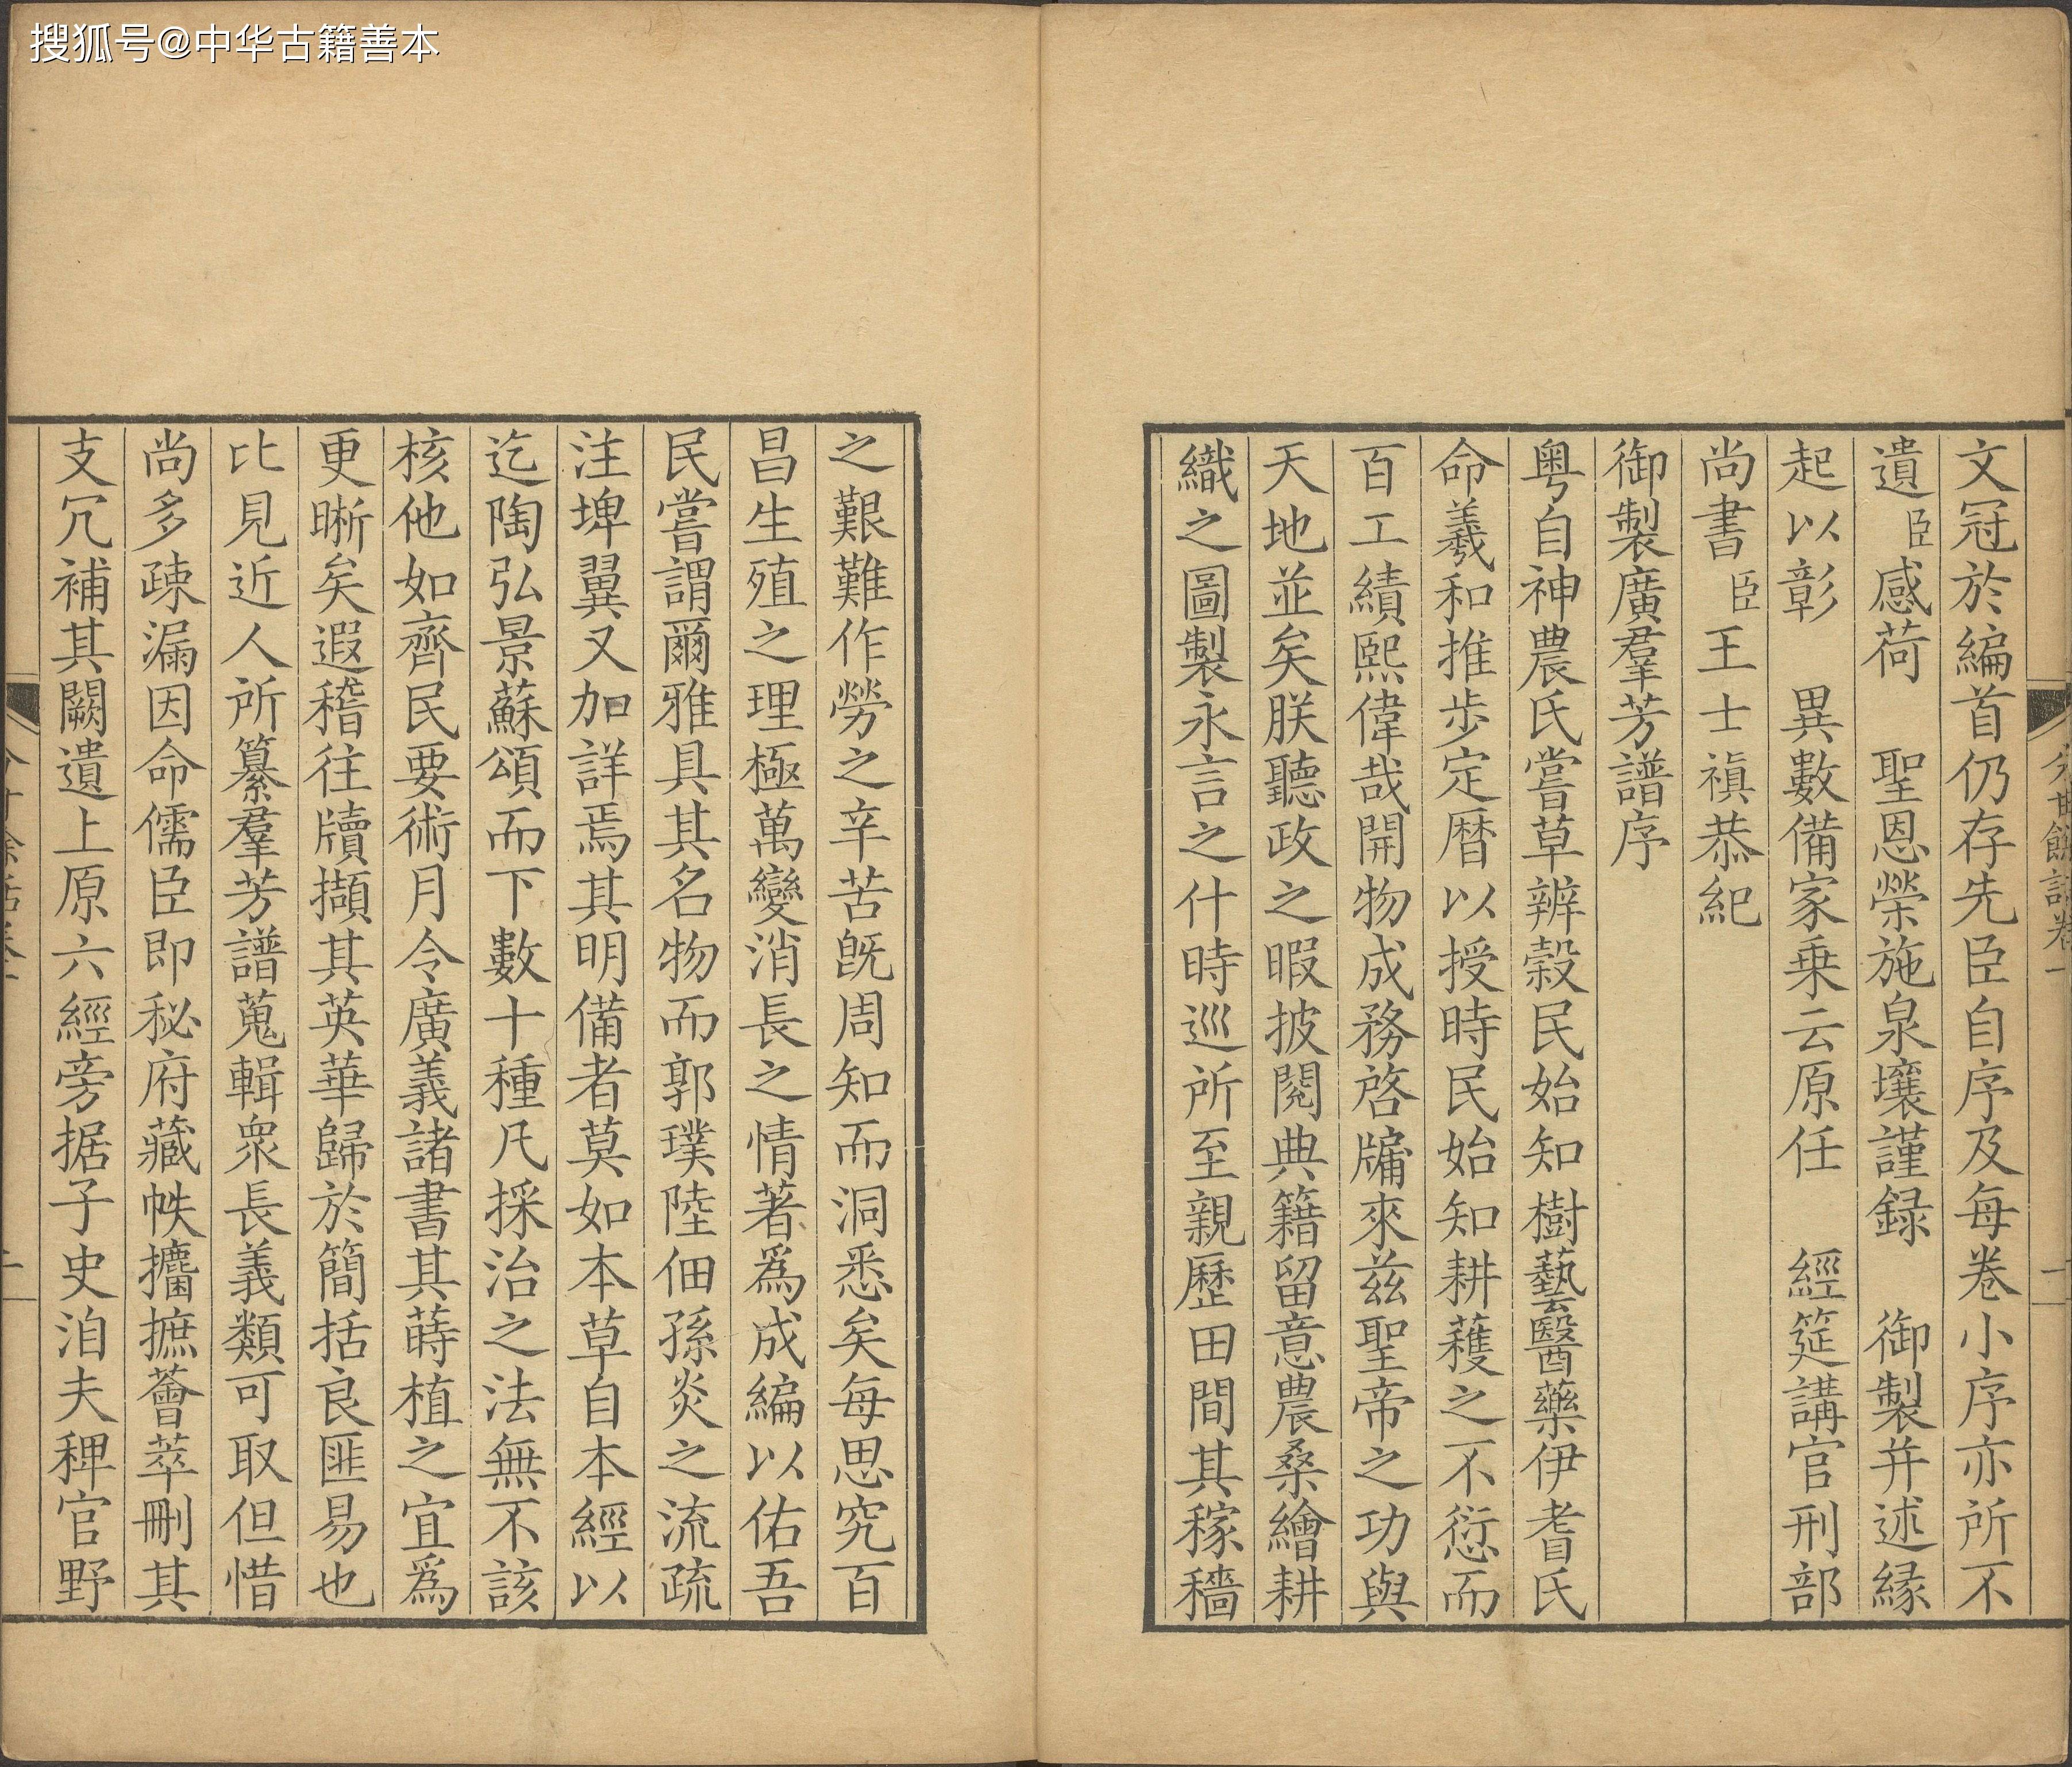 搜狐号@中华古籍善本
文冠於編首仍存先臣自序及每卷小序亦所不
遺臣感荷　聖恩榮施泉壤謹録　御製并述縁
起以彰　異數備家乗云原任　經筵講官刑部
尚書臣王士禛恭紀
御製廣羣芳譜序
粤自神農氏嘗草辨穀民始知樹藝醫藥伊耆氏
命羲和推歩定暦以授時民始知耕穫之不愆而
百工績熙偉哉開物成務啓牖來兹聖帝之功與
天地並矣朕聽政之暇披閱典籍留意農桑繪耕
織之圖製永言之什時巡所至親歷田間其稼穡
之艱難作勞之辛苦旣周知而洞悉矣每思究百
昌生殖之理極萬變消長之情著爲成編以佑吾
民嘗謂爾雅具其名物而郭璞陸佃孫炎之流疏
注埤翼又加詳焉其明備者莫如本草自本經以
迄陶弘景蘇頌而下數十種凡採治之法無不該
核他如齊民要術月令廣義諸書其蒔植之宜爲
更晣矣遐稽往牘擷其英華歸於簡括良匪易也
比見近人所纂羣芳譜蒐輯衆長義類可取但惜
尚多疎漏因命儒臣即秘府藏帙攟摭薈萃刪其
支冗補其闕遺上原六經旁据子史洎夫稗官野